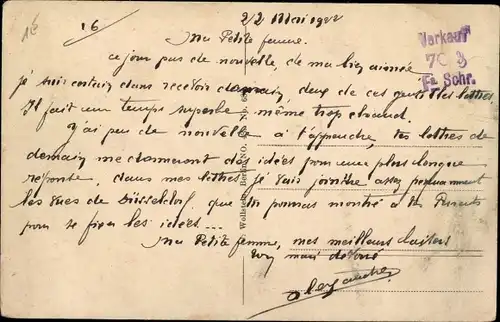 16
22 Mai 1922
Verkauf
7C 3
Fa. Schr.
Ma Petite femme.
ce jour pas de nouvelle, de ma bien aimée
je suis certain dans recevoir demain deux de ces gentilles lettres
Il fait un temps superbe même trop chaud.
J'ai peu de nouvelle à t'apprendre, tes lettres de
demain me donneront des idées pour une plus longue
réponse, dans mes lettres je vais joindre assez
les vues de Düsseldorf, que tu pourras montré à tes Parents
pour se fixer les idées ...
Ma Petite femme, mes meilleurs baisers
ton mari dévoué
Wollstein, Berlin NO.